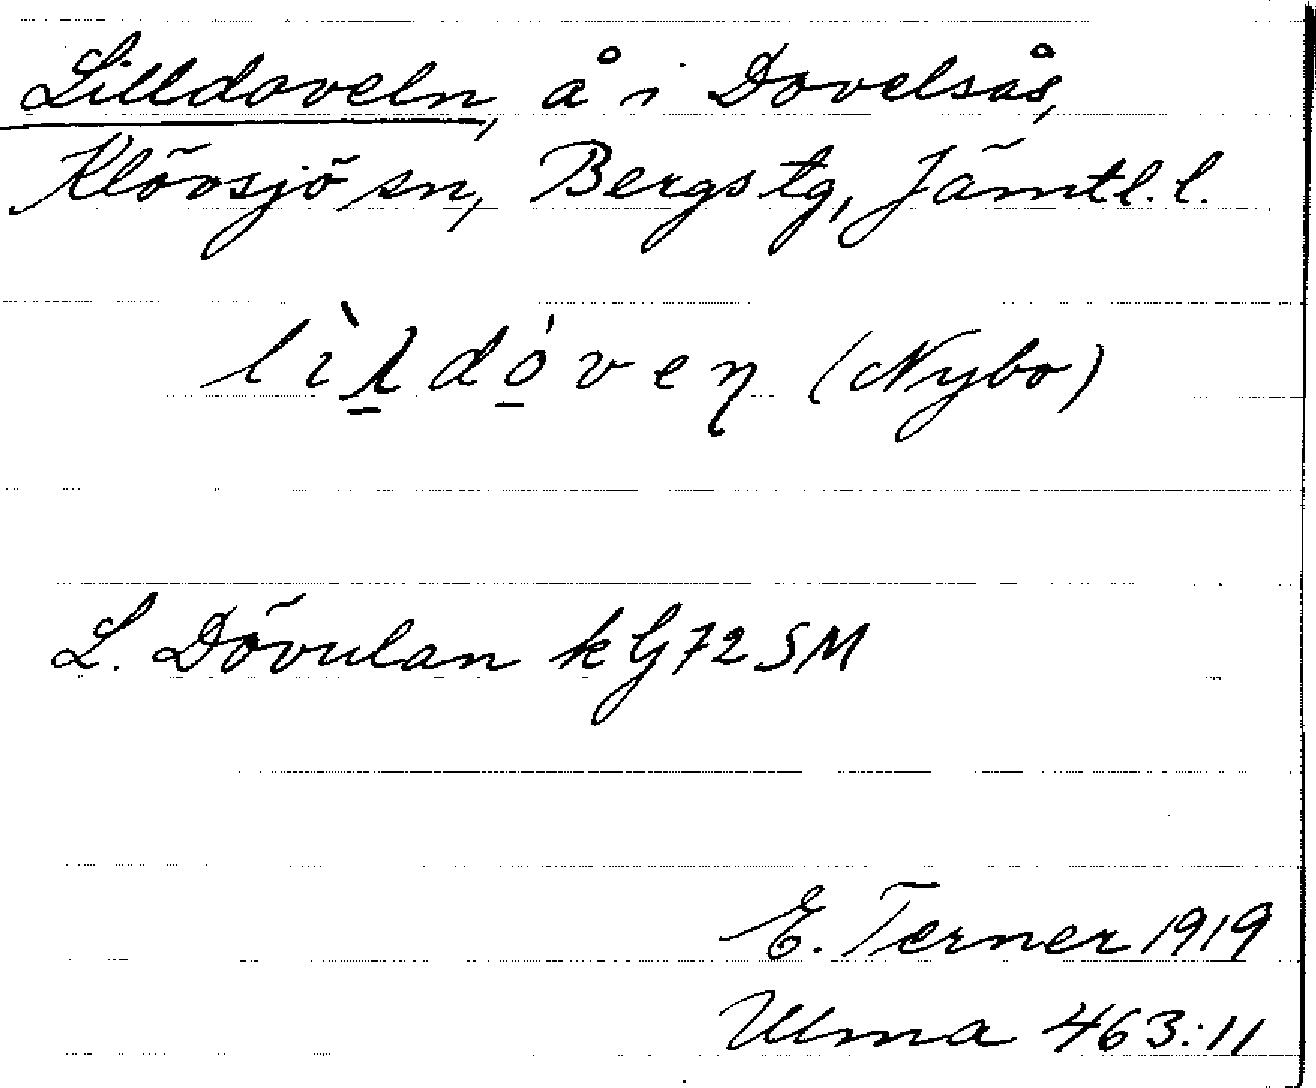 Lilldoveln, å i Dovelsås,
Klövsjö sn, Bergs tg, Jämtl. l.
lìl̠dó̠veꞃ (Nybo)
L. Dövulan k G 72 SM
E. Terner 1919
Ulma 463:11